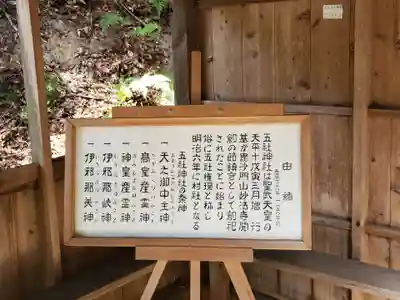 由緒
五社神社は聖武天皇の
天平十戊寅三月僧 行
基が毘沙門山妙法寺開
創の節鎮守として創祀
されたことに始まり
俗に五社権現と称し
明治六年に村社となる
五社神社の祭神
一 天之御中主神
一 高皇産霊神
一 神皇産霊神
一 伊邪那岐神
一 伊邪那美神